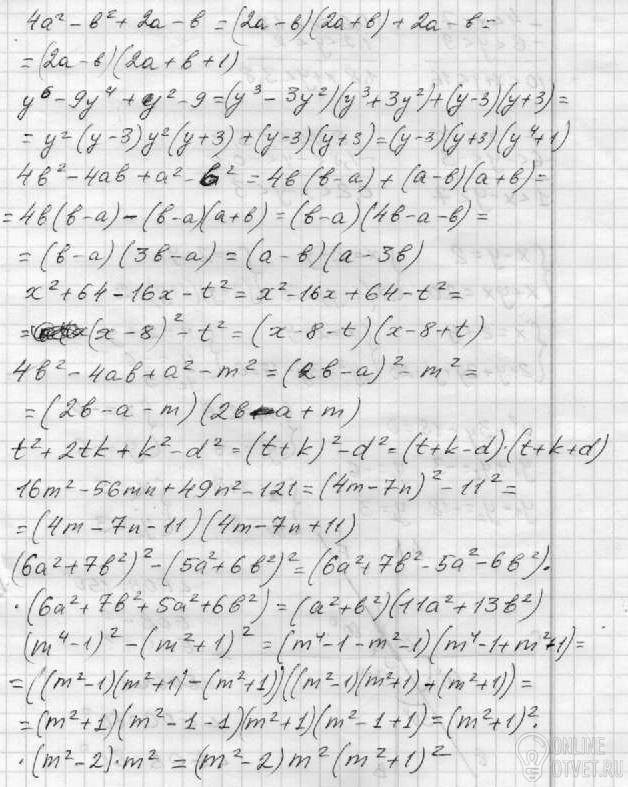 4a² - b² + 2a - b = (2a - b)(2a + b) + 2a - b =
= (2a - b)(2a + b + 1)
y⁶ - 9y⁴ + y² - 9 = (y³ - 3y²)(y³ + 3y²) + (y - 3)(y + 3) =
= y²(y - 3)y²(y + 3) + (y - 3)(y + 3) = (y - 3)(y + 3)(y⁴ + 1)
4b² - 4ab + a² - b² = 4b(b - a) + (a - b)(a + b) =
= 4b(b - a) - (b - a)(a + b) = (b - a)(4b - a - b) =
= (b - a)(3b - a) = (a - b)(a - 3b)
x² + 64 - 16x - t² = x² - 16x + 64 - t² =
= (x - 8)² - t² = (x - 8 - t)(x - 8 + t)
4b² - 4ab + a² - m² = (2b - a)² - m² =
= (2b - a - m)(2b - a + m)
t² + 2tk + k² - d² = (t + k)² - d² = (t + k - d)·(t + k + d)
16m² - 56mn + 49n² - 121 = (4m - 7n)² - 11² =
= (4m - 7n - 11)(4m - 7n + 11)
(6a² + 7b²)² - (5a² + 6b²)² = (6a² + 7b² - 5a² - 6b²)·
·(6a² + 7b² + 5a² + 6b²) = (a² + b²)(11a² + 13b²)
(m⁴ - 1)² - (m² + 1)² = (m⁴ - 1 - m² - 1)(m⁴ - 1 + m² + 1) =
= ((m² - 1)(m² + 1) - (m² + 1))((m² - 1)(m² + 1) + (m² + 1)) =
= (m² + 1)(m² - 1 - 1)(m² + 1)(m² - 1 + 1) = (m² + 1)²·
·(m² - 2)·m² = (m² - 2)m²(m² + 1)²
ONLINE
OTVET.RU